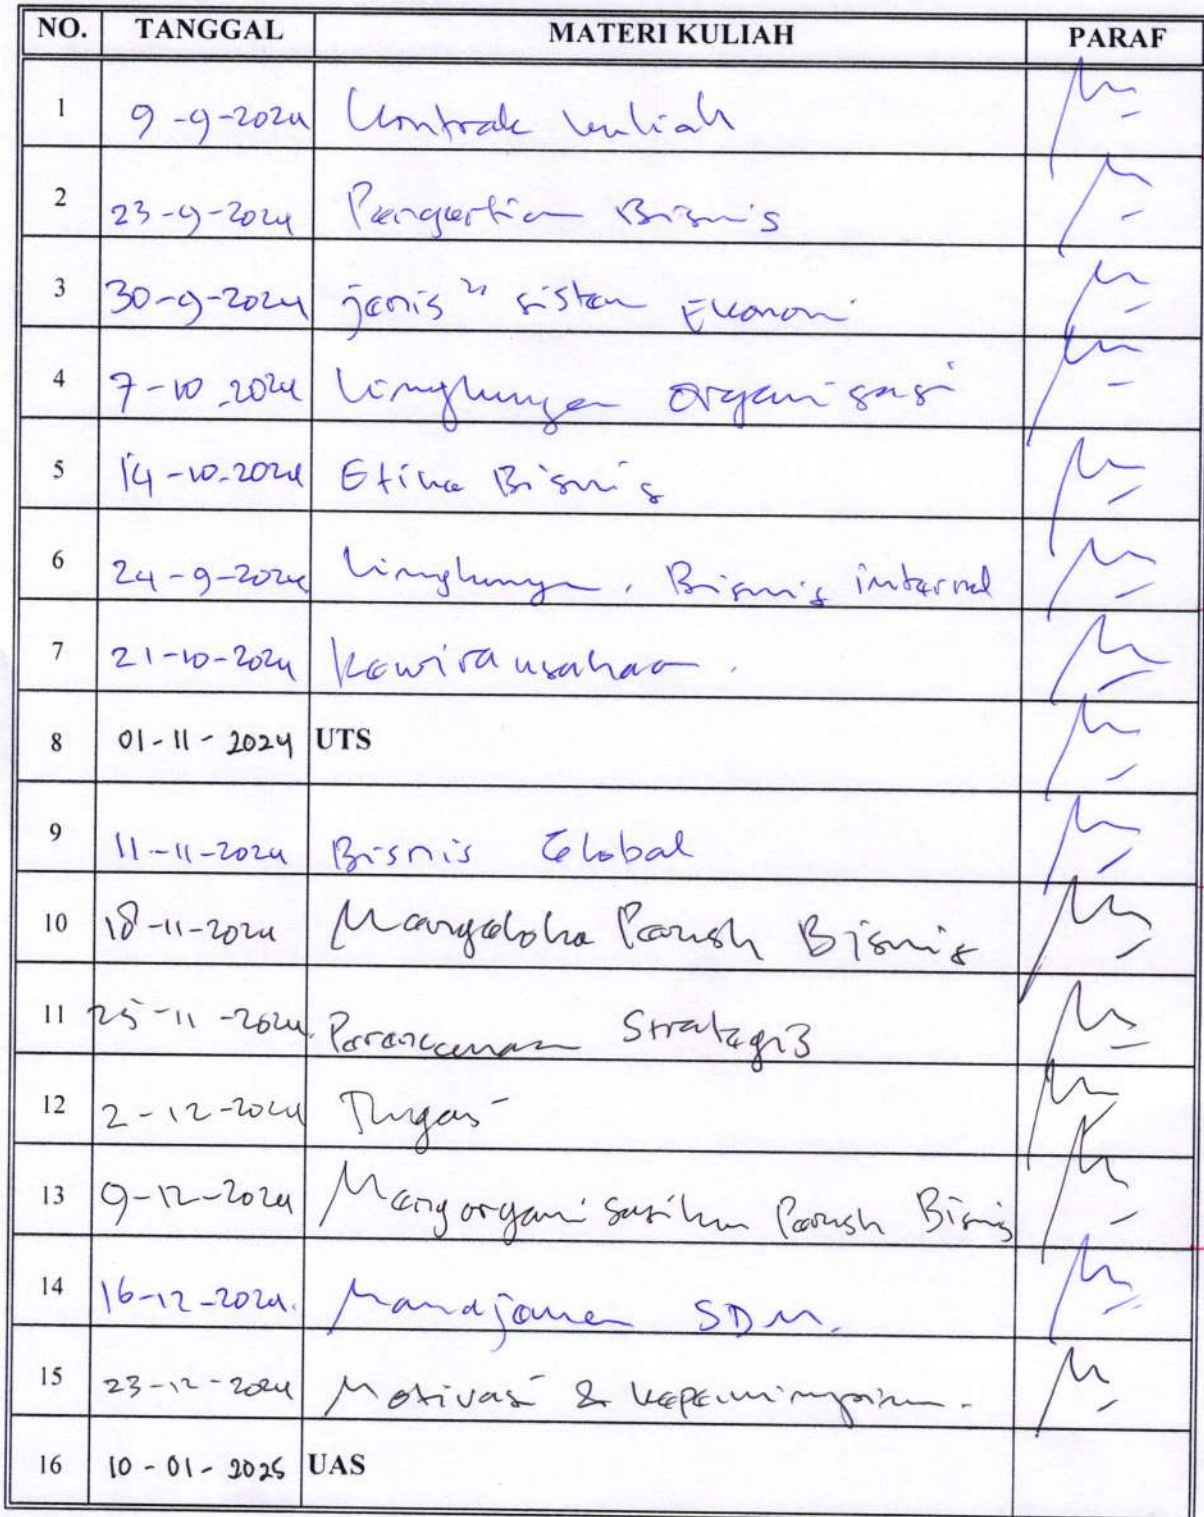 NO. TANGGAL MATERI KULIAH PARAF
1 9-9-2024 Kontrak kuliah
2 23-9-2024 Pengertian Bisnis
3 30-9-2024 jenis 2x sistem Ekonomi
4 7-10-2024 Lingkungan organisasi
5 14-10-2024 Etika Bisnis
6 24-9-2024 Lingkungan. Bisnis internal
7 21-10-2024 Kewirausahaan.
8 01-11-2024 UTS
9 11-11-2024 Bisnis Global
10 18-11-2024 Mengelola Perush Bisnis
11 25-11-2024. Perencanaan Strategi
12 2-12-2024 Tugas
13 9-12-2024 Mengorganisasikan Perush Bisnis
14 16-12-2024. Manajemen SDM.
15 23-12-2024 Motivasi & kepemimpinan.
16 10-01-2025 UAS